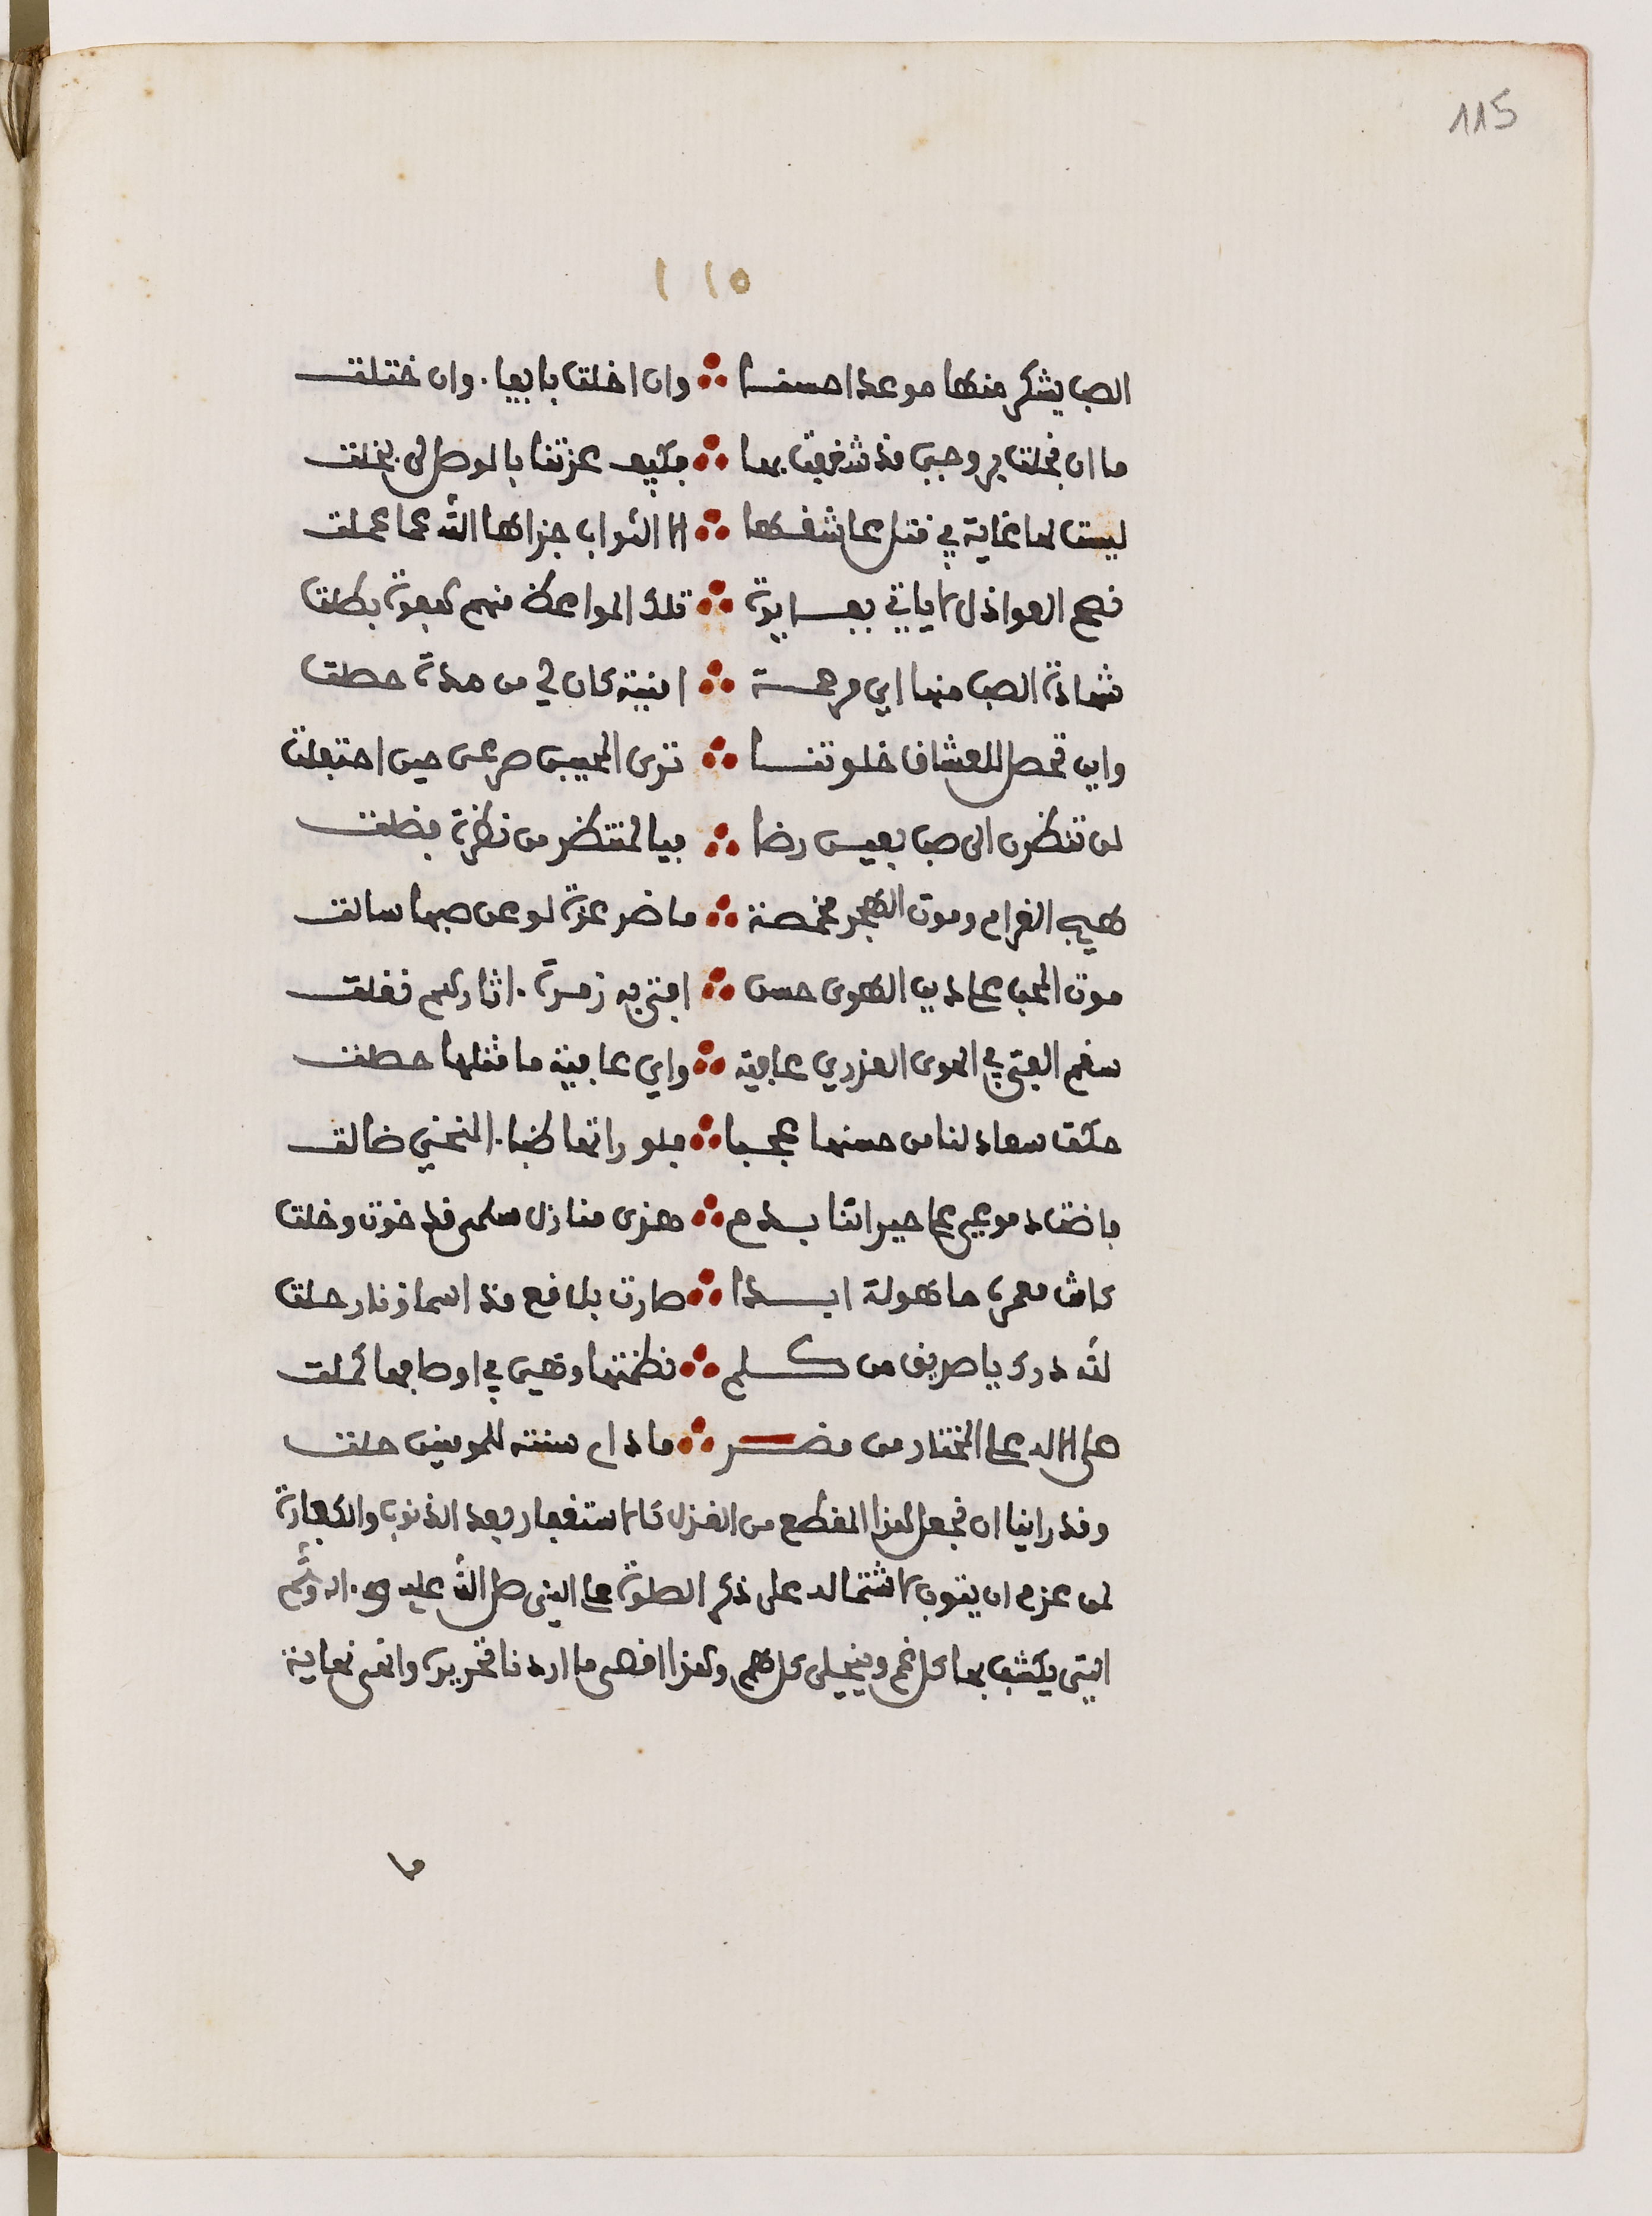 115
١١٥
الصب يشكر منها موعدا حسنا ∴ وان اخلت بايفا. وان ختلت
ما ان بخلت بروحي قد شغفت بها ∴ فكيف عزتنا بالوصل لي بخلت
ليست لها غاية في قتل عاشقها ∴ الا الثواب جزاها الله عما عملت
نصح العواذل لا ياتي بفايدة ∴ تلك المواعظ منهم كعبوة بطلت
شهادة الصب منها اي مرحمة ∴ امنية كان لي من مدة حصلت
واي تحصل للعشاق خلوتنا ∴ ترى المحبين صرعى حين احتفلت
لن تنظرن الى صب بعين رضا ∴ فيا لمنتظر من نظرة فضلت
هيب الغرام وموت الهجر مخمصة ∴ ما ضر عزة لو عن صبها سالت
موت المحب على دين الهوى حسن ∴ افتى به زمرة. اثارهم نقلت
سقم الفتى في الهوى العذري عافية ∴ واي عافية ما مثلها حصلت
حكت سعاد لنا من حسنها عجبا ∴ فلو راتها ظبا. المنحني ضالت
فاضت دموعي على جيراننا بدم ∴ هذي منازل سلمى قد خوت وخلت
كانت معمرة ماهولة ابدا ∴ صارت بلاقع مذ اسما ونار حلت
لله درك يا صديق من كلم ∴ نظمتها وهي في اوصافها كملت
صلى الاله على المختار من مضر ∴ ما دام سنته للمومنين حلت
وقد راينا ان نجعل هذا المقطع من الغزل كالاستغفار بعد الذنوب والكفارة
لمن عزم ان يتوب لاشتماله على ذكر الصلوة على النبي صلى الله عليه و. اله وسلم
التي يكشف بها كل غم وينجلي كل هم وهذا اقصى ما اردنا تحريره وانهى نهاية
ما